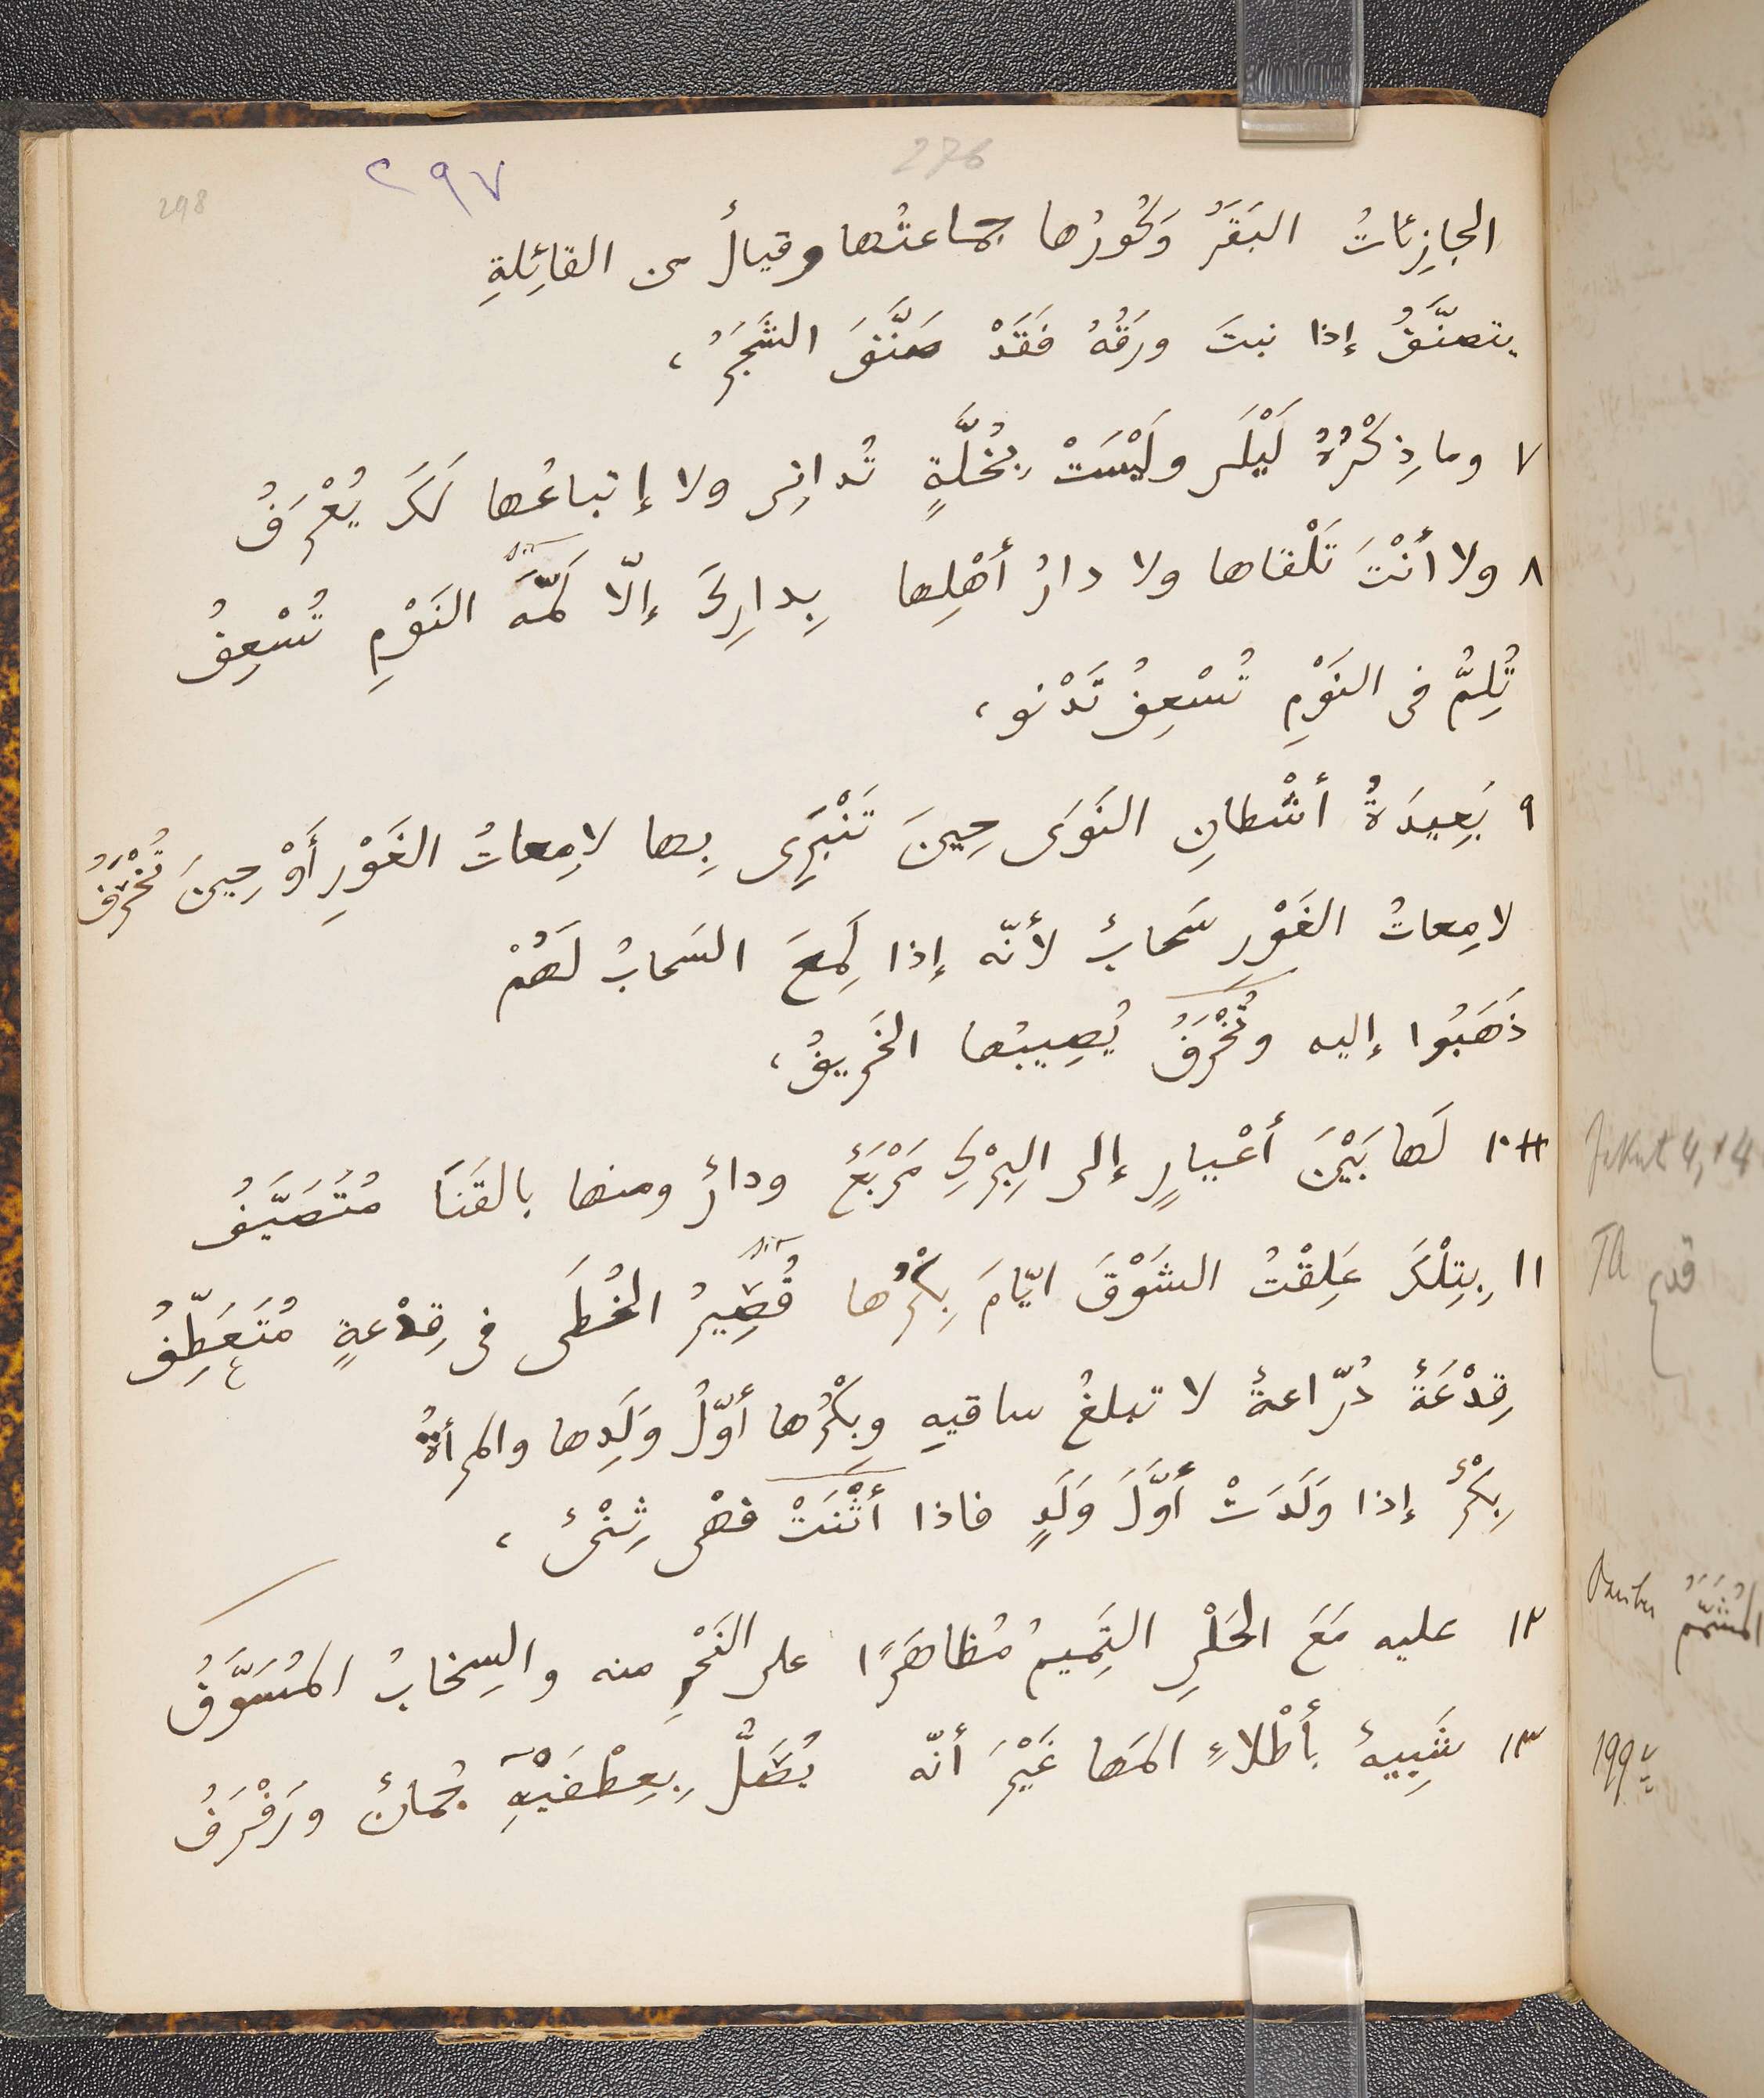 276
٢٩٧
298
الجازِئاتُ البَقَرُ وَحُورُها جماعتُها وقيالٌ من القائِلةِ
يتصنَّفُ إذا نبتَ ورَقُهُ فَقَدْ صَنَّفَ الشَّجَرُ ،
٧ وما ذِكْرُهُ لَيْلَى ولَيْسَتْ بِخُلَّةٍ تُدانِى ولا إتباعُها لَكَ يُعْرَفُ
٨ ولا أنْتَ تَلْقاها ولا دارُ أهْلِها بِدارِكَ إلّا لَمَّةَ النَوْمِ تُسْعِفُ
تُلِمُّ فى النَوْمِ تُسْعِفُ تَدْنو ،
٩ بَعِيدَةُ أشْطانِ النَوَى حِينَ تَنْبَرِى بِها لامِعاتُ الغَوْرِ أَوْ حِينَ تُخْرَفُ
لامِعاتُ الغَوْرِ سَحابٌ لأنّه إذا لَمِعَ السَحابُ لَهُمْ
ذَهَبُوا إليه وتُخْرَفُ يُصِيبُها الخَرِيفُ ،
١٠ لَها بَيْنَ أعْيارٍ إلى البِرْكِ مَرْبَعٌ ودارٌ ومنها بالقَنَا مُتَصَيَّفُ
١١ بِتِلْكَ عَلِقْتُ الشَوْقَ ايّامَ بِكْرُها قُصَيِّرُ الخُطَى فى قِدْعةٍ مُتَعَطِّفُ
قِدْعَةٌ دُرّاعةٌ لا تبلغُ ساقيهِ وبِكْرُها أوّلُ وَلَدِها والمرأةُ
بِكْرٌ إذا وَلَدَتْ أوَّلَ وَلَدٍ فاذا أثْنَتْ فهْى ثِنْىٌ ،
١٢ عليه مَعَ الحَلْىِ التَمِيمُ مُظاهَرًا على النَحْرِ منه والسِخابُ المُسَوَّفُ
١٣ شَبِيهٌ بأطْلاءِ المَها غَيْرَ أنّه يُصَلُّ بِعِطْفَيْهِ جُمانٌ ورَفْرَفُ
TA قدع
199